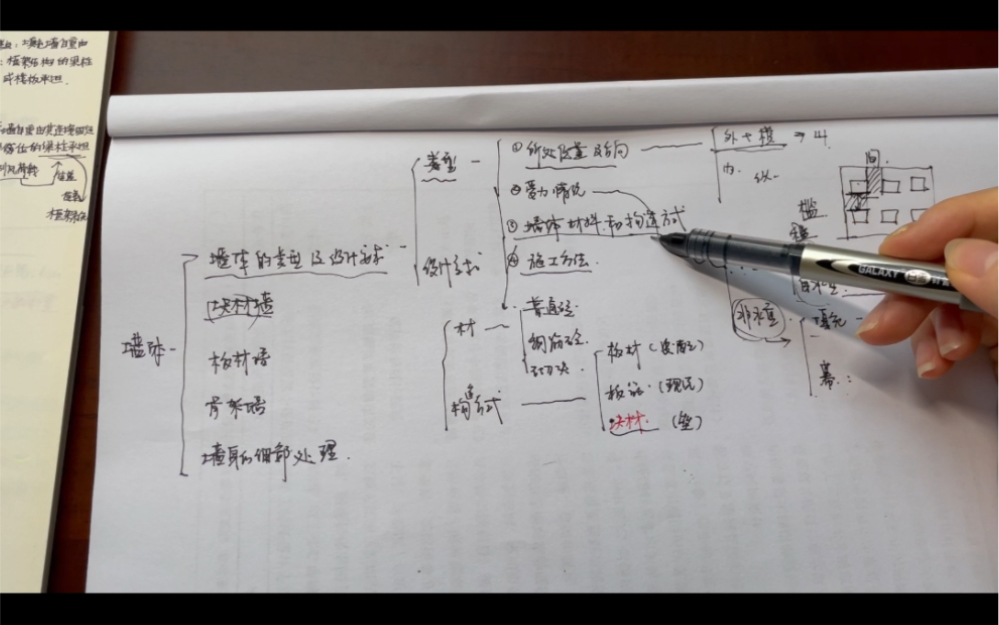 框架结构的梁柱
或楼板承担.
类型
① 所处位置及方向
外 + 横 → 山
内. 纵
② 受力情况
窗
③ 墙体材料和构造方式
槛
④ 施工方法.
墙体的类型及设计要求
设计要求
GALAXY
块材墙
材
普通砼
非承重
填充
墙体
钢筋砼
板材墙
板材 (装配)
幕:
骨架墙
构造方式
板筑. (现浇)
块材. (垒)
墙身的细部处理.